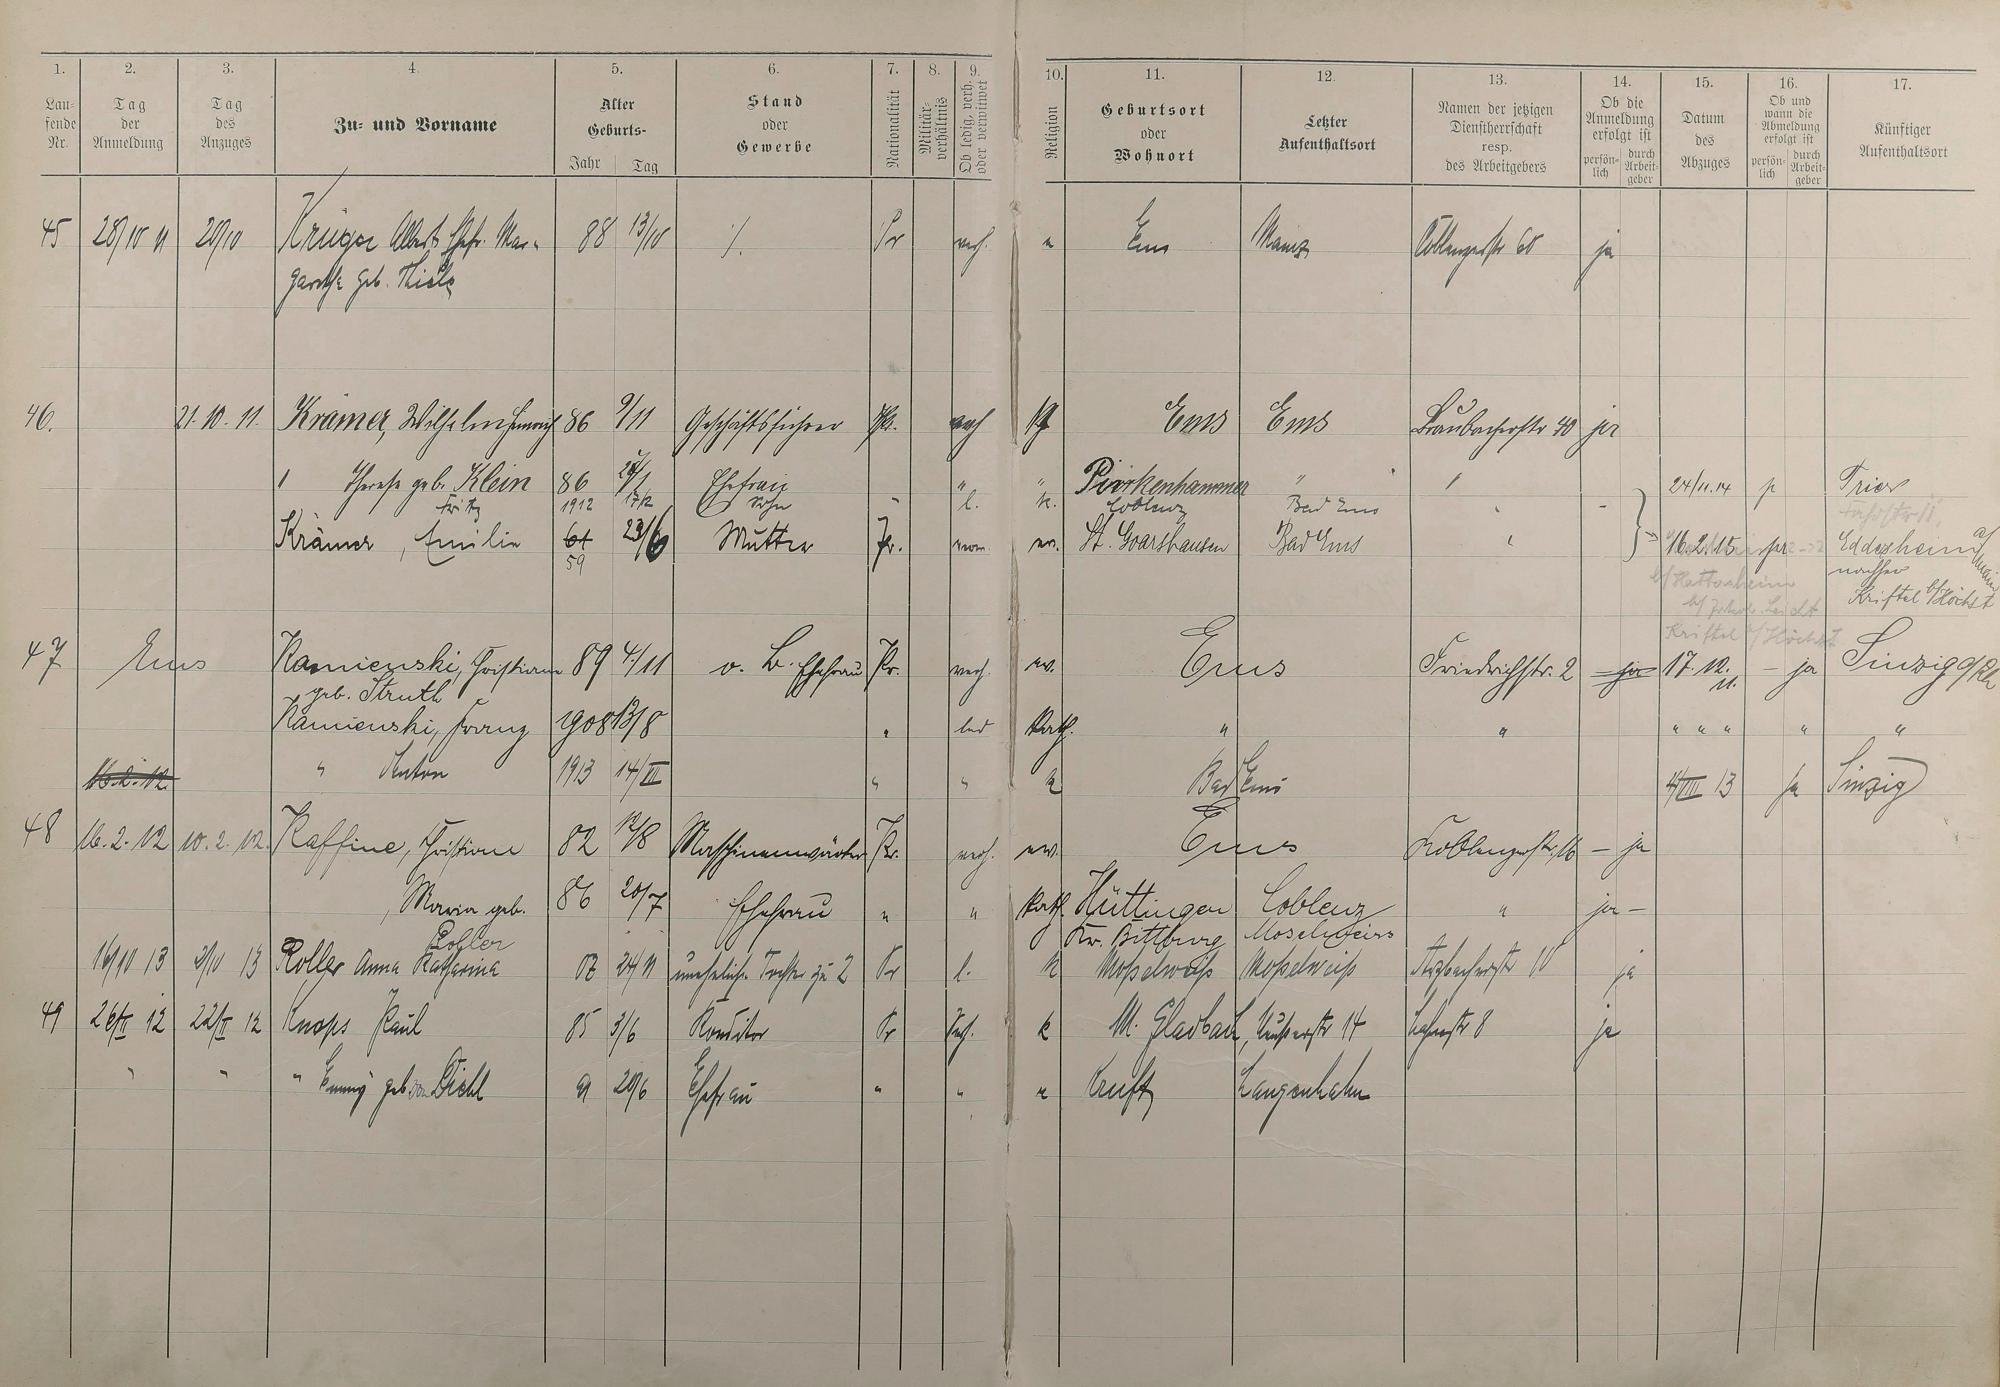 1. 2. 3. 4. 5. 6. 7. 8. 9. 10. 11. 12. 13. 14. 15. 16. 17.
Laufende Nr.
Tag der Anmeldung
Tag des Anzuges
Zu- und Vorname
Alter Geburts-
Jahr Tag
Stand oder Gewerbe
Nationalität
Militärverhältnis
Ob ledig, verh. oder verwitwet
Religion
Geburtsort oder Wohnort
Letzter Aufenthaltsort
Namen der jetzigen Dienstherrschaft resp. des Arbeitgebers
Ob die Anmeldung erfolgt ist
persönlich durch Arbeitgeber
Datum des Abzuges
Ob und wann die Abmeldung erfolgt ist
persönlich durch Arbeitgeber
Künftiger Aufenthaltsort
45 28/10 11 20/10 Krüger Albert Ehefr. Mar- 88 13/10 /. Pr verh. Ems Mainz Coblenzerstr 60 ja
garethe geb. Thiele
46. 21. 10. 11. Krämer, Wilhelm Heinrich 86 9/11 Geschäftsführer Pr. verh Ems Ems Braubacherstr 40 ja
" Therese geb. Klein 86 Ehefrau " " Pirkenhammer " " 24/11.14 p Trier
Fritz 1912 Sohn " l. k. Coblenz Bad Ems "
Krämer, Emilie 61 23/6 Mutter Pr. ev. St. Goarshausen Bad Ems " 16.2.15 Eddersheim a/Main
59 nachher
b/Hattersheim Kriftel b/Höchst
Kriftel b/Höchst
47 Ems Kamienski, Christiane 89 4/11 o. B. Ehefrau Pr. verh. ev. Ems Friedrichstr. 2 - ja 17. 10. 11. - ja Sinzig a/Rh
geb. Struth
Kamienski, Franz 1908 13/8 " led Kath. " " " " " " "
16.2.12 " Anton 1913 14/III " " k Bad Ems 4/VIII 13 ja Sinzig
48 16. 2. 12 10. 2. 12. Kaffine, Christian 82 12/8 Maschinenwärter Pr. verh. ev. Ems Koblenzerstr. 16 - ja
, Maria geb. 86 20/7 Ehefrau " " Kath. Hüttingen Coblenz " ja -
Kohler Kr. Bittburg Moselweiss
16/10 13 3/10 13 Koller Anna Katharina 07 24/11 uneheliche Tochter zu 2 Pr l. k Moselweiß Moselweiß Arzbacherstr 10 ja
49 26/II 12 22/II 12 Knops Paul 85 3/6 Konditor Pr Verh. k M. Gladbach, Neußerstr 14 Lahnstr 8 ja
" " " Emmy geb. von Diehl 91 20/6 Ehefrau " " Kruft Langenhahn